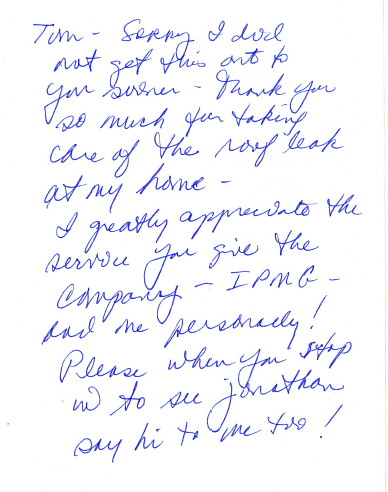 Tim - Sorry I did
not get this out to
you sooner - Thank you
so much for taking
care of the roof leak
at my home -
I greatly appreciate the
service you give the
Company - IPMG -
and me personally!
Please when you stop
in to see Jonathan
say hi to me too!